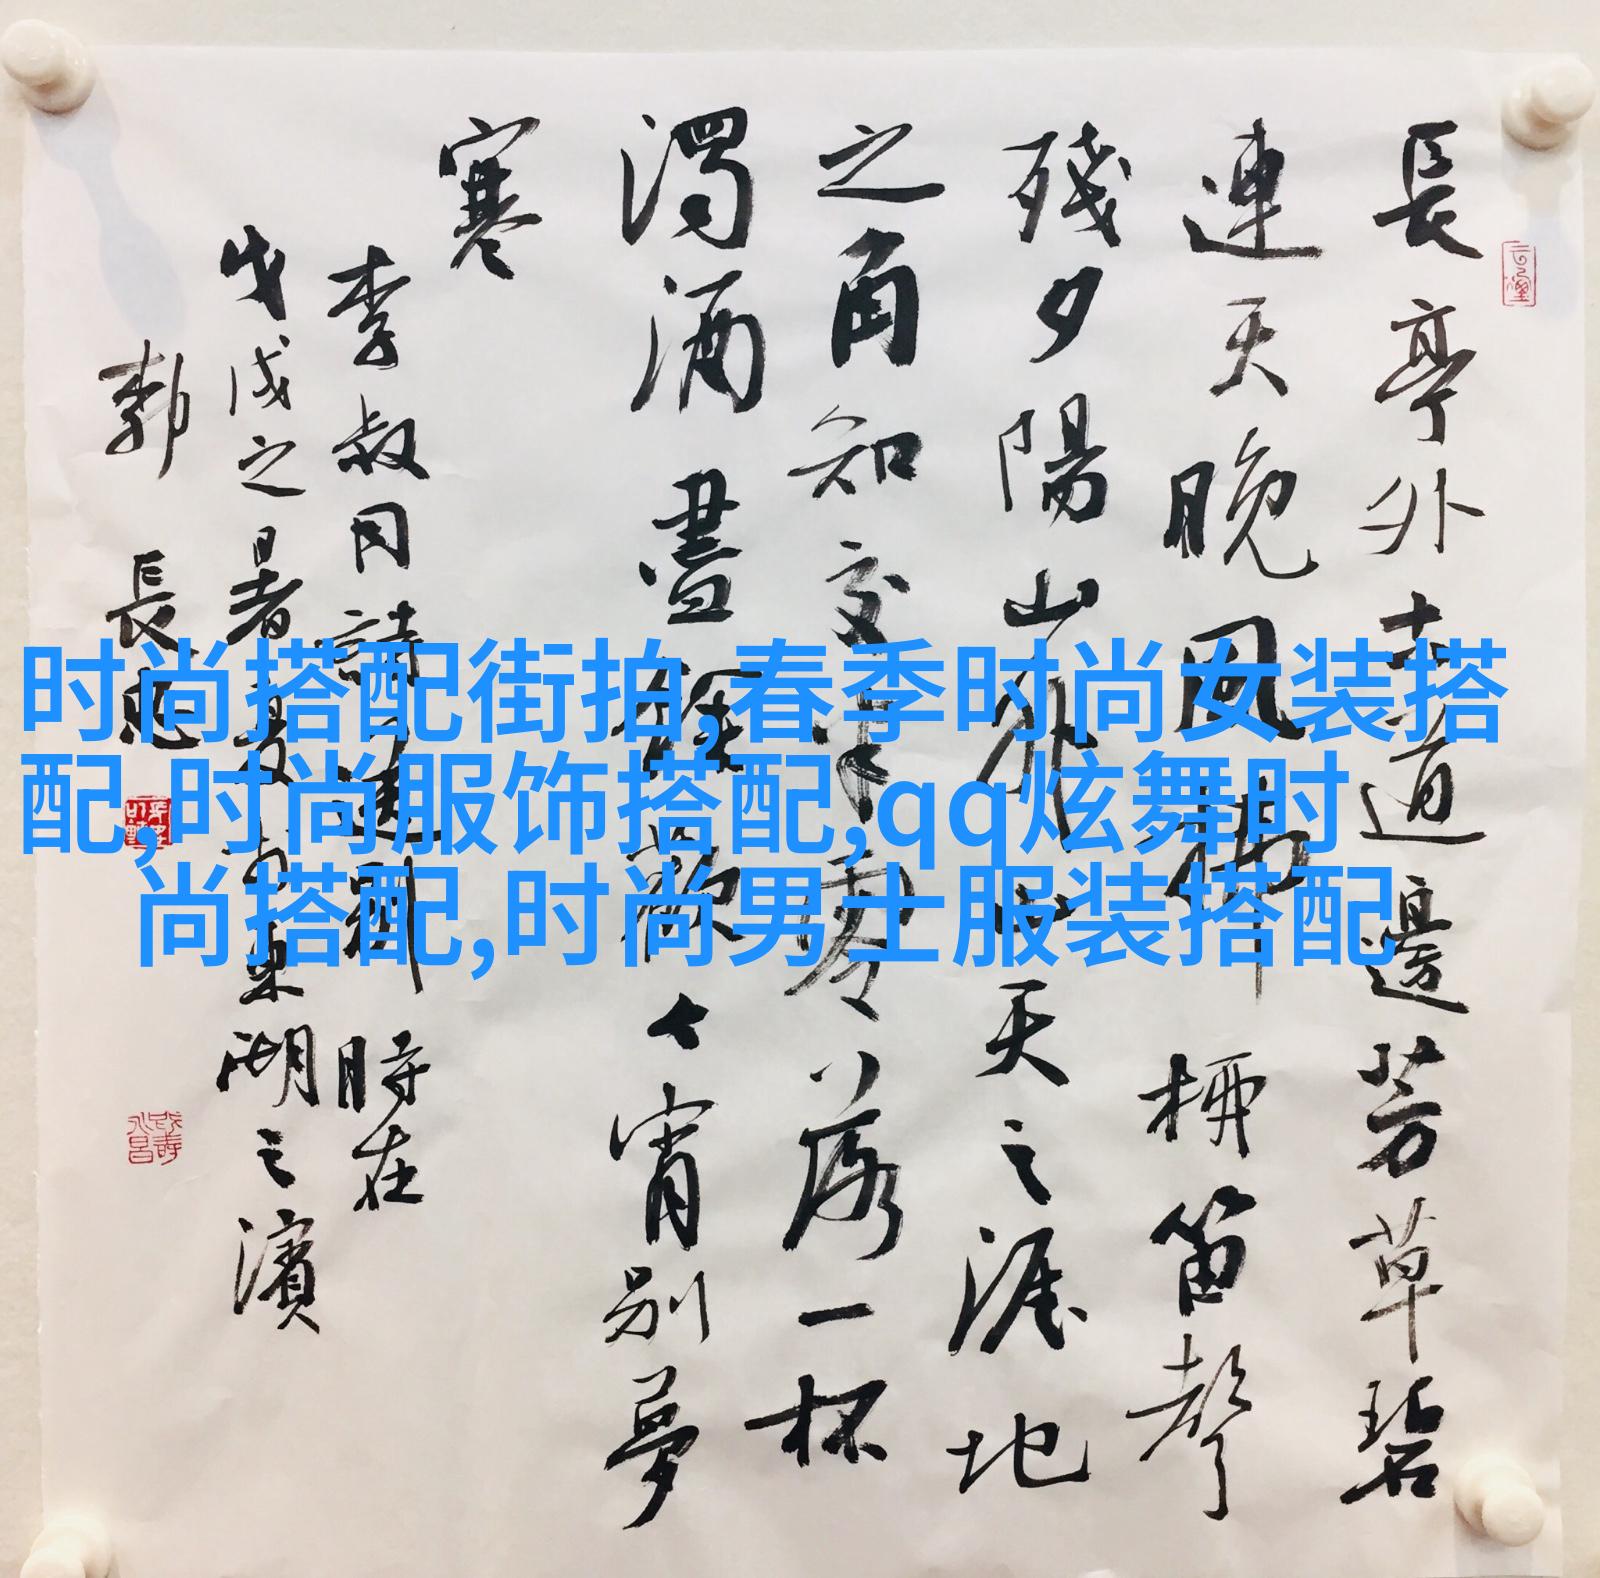 長亭外古道邊芳草碧
連天晚風拂柳笛聲
殘夕陽山外山天之涯地
之角知交半零落一杯
濁酒盡餘歡今宵別夢
寒
李叔同詩送別 時在
戊戌之暑夏東湖之濱
郭長
时尚搭配街拍,春季时尚女装搭
配,时尚服饰搭配,qq炫舞时
尚搭配,时尚男士服装搭配